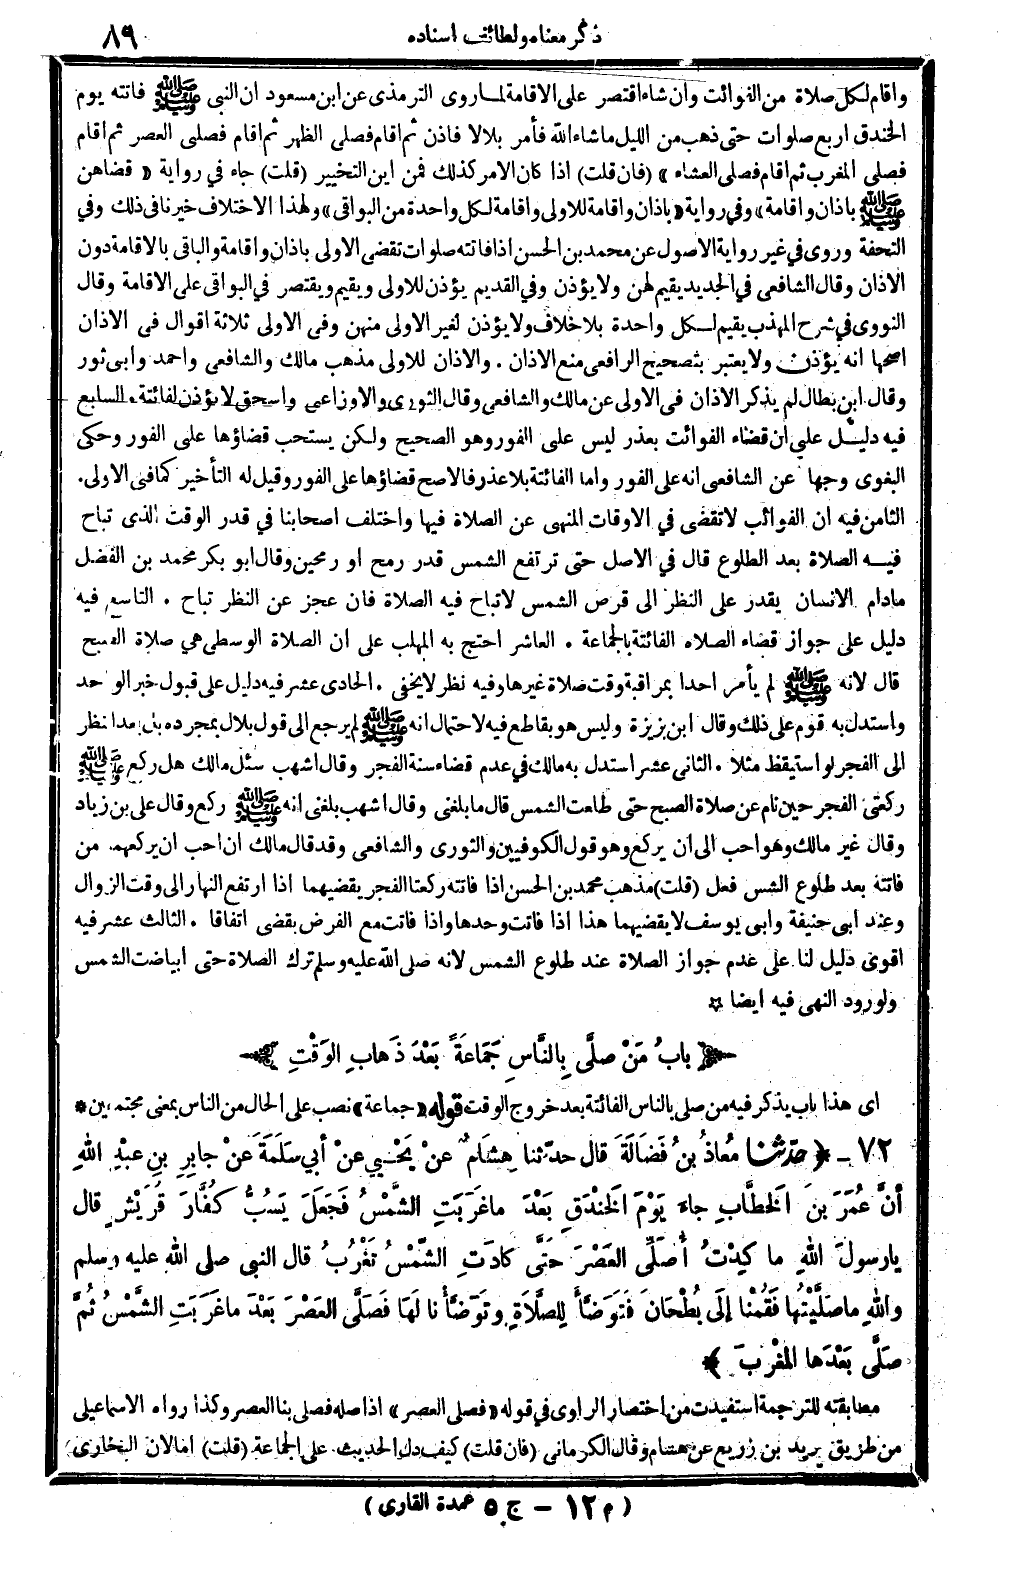 ذكر معناه ولطائف اسناده ٨٩
واقام لكل صلاة من الفوائت وان شاء اقتصر على الاقامة لما روى الترمذى عن ابن مسعود ان النبى ﷺ فاتته يوم
الخندق اربع صلوات حتى ذهب من الليل ما شاء الله فأمر بلالا فاذن ثم اقام فصلى الظهر ثم اقام فصلى العصر ثم اقام
فصلى المغرب ثم اقام فصلى العشاء » (فان قلت) اذا كان الامر كذلك فمن اين التخيير (قلت) جاء في رواية « قضاهن
ﷺ باذان واقامة» وفي رواية « باذان واقامة للاولى واقامة لكل واحدة من البواقى» ولهذا الاختلاف خيرنا فى ذلك وفي
التحفة وروى في غير رواية الاصول عن محمد بن الحسن اذا فاتته صلوات تقضى الاولى باذان واقامة والباقى بالاقامة دون
الاذان وقال الشافعى في الجديد يقيم لهن ولا يؤذن وفي القديم يؤذن للاولى ويقيم ويقتصر في البواقى على الاقامة وقال
النووى في شرح المهذب يقيم لكل واحدة بلا خلاف ولا يؤذن لغير الاولى منهن وفى الاولى ثلاثة اقوال فى الاذان
اصحها انه يؤذن ولا يعتبر بتصحيح الرافعى منع الاذان . والاذان للاولى مذهب مالك والشافعى واحمد وابى ثور
وقال ابن بطال لم يذكر الاذان فى الاولى عن مالك والشافعى وقال الثورى والاوزاعى واسحق لا يؤذن لفائتة . السابع
فيه دليل على ان قضاء الفوائت بعذر ليس على الفور وهو الصحيح ولكن يستحب قضاؤها على الفور وحكى
البغوى وجها عن الشافعى انه على الفور واما الفائتة بلا عذر فالاصح قضاؤها على الفور وقيل له التأخير كما فى الاولى .
الثامن فيه ان الفوائت لا تقضى في الاوقات المنهى عن الصلاة فيها واختلف اصحابنا في قدر الوقت الذى تباح
فيه الصلاة بعد الطلوع قال في الاصل حتى ترتفع الشمس قدر رمح او رمحين وقال ابو بكر محمد بن الفضل
مادام الانسان يقدر على النظر الى قرص الشمس لا تباح فيه الصلاة فان عجز عن النظر تباح . التاسع فيه
دليل على جواز قضاء الصلاه الفائتة بالجماعة . العاشر احتج به المهلب على ان الصلاة الوسطى هي صلاة الصبح
قال لانه ﷺ لم يأمر احدا بمراقبة وقت صلاة غيرها وفيه نظر لا يخفى . الحادى عشر فيه دليل على قبول خبر الواحد
واستدل به قوم على ذلك وقال ابن بزيزة وليس هو بقاطع فيه لاحتمال انه ﷺ لم يرجع الى قول بلال بمجرده بل بعد النظر
الى الفجر لو استيقظ مثلا . الثانى عشر استدل به مالك في عدم قضاء سنة الفجر وقال اشهب سئل مالك هل ركع ﷺ
ركعتى الفجر حين نام عن صلاة الصبح حتى طلعت الشمس قال ما بلغنى وقال اشهب بلغنى انه ﷺ ركع وقال على بن زياد
وقال غير مالك وهو احب الى ان يركع وهو قول الكوفيين والثورى والشافعى وقد قال مالك ان احب ان يركعهما من
فاتته بعد طلوع الشمس فعل (قلت) مذهب محمد بن الحسن اذا فاتته ركعتا الفجر يقضيهما اذا ارتفع النهار الى وقت الزوال
وعند ابى حنيفة وابى يوسف لا يقضيهما هذا اذا فاتت وحدها واذا فاتت مع الفرض يقضى اتفاقا . الثالث عشر فيه
اقوى دليل لنا على عدم جواز الصلاة عند طلوع الشمس لانه صلى الله عليه وسلم ترك الصلاة حتى ابياضت الشمس
ولورود النهى فيه ايضا
﴿ بابُ مَنْ صلَّى بِالنَّاسِ جَمَاعَةً بَعْدَ ذَهابِ الوَقْتِ ﴾
اى هذا باب يذكر فيه من صلى بالناس الفائتة بعد خروج الوقت قوله « جماعة » نصب على الحال من الناس بمعنى مجتمعين *
٧٢ - ﴿ حدّثنا مُعاذُ بنُ فَضَالَةَ قال حدّثنا هِشَامٌ عَنْ يَحْيى عنْ أبي سَلَمَةَ عَنْ جابِرِ بنِ عبْدِ اللهِ
أنَّ عُمَرَ بنَ الخطَّابِ جاءَ يَوْمَ الخَنْدَقِ بَعْدَ ماغَرَبَتِ الشَّمْسُ فَجَعَلَ يَسُبُّ كُفَّارَ قُرَيْشٍ قال
يارسولَ اللهِ ما كِدْتُ أُصَلِّى العَصْرَ حَتَّى كادَتِ الشَّمْسُ تَغْرُبُ قال النبى صلى الله عليه وسلم
واللهِ ماصَلَّيْتُها فَقُمْنا إلَى بُطْحَانَ فَتَوَضَّأَ لِلصَّلاَةِ وتَوَضَّأْنا لَهَا فَصَلَّى العَصْرَ بَعْدَ ماغَرَبَتِ الشَّمْسُ ثُمَّ
صَلَّى بَعْدَها المَغْرِبَ ﴾
مطابقته للترجمة استفيدت من اختصار الراوى في قوله « فصلى العصر » اذ اصله فصلى بنا العصر وكذا رواه الاسماعيلى
من طريق يزيد بن زريع عن هشام وقال الكرمانى (فان قلت) كيف دل الحديث على الجماعة (قلت) اما لان البخارى
( م ١٢ – ج ٥ عمدة القارى )